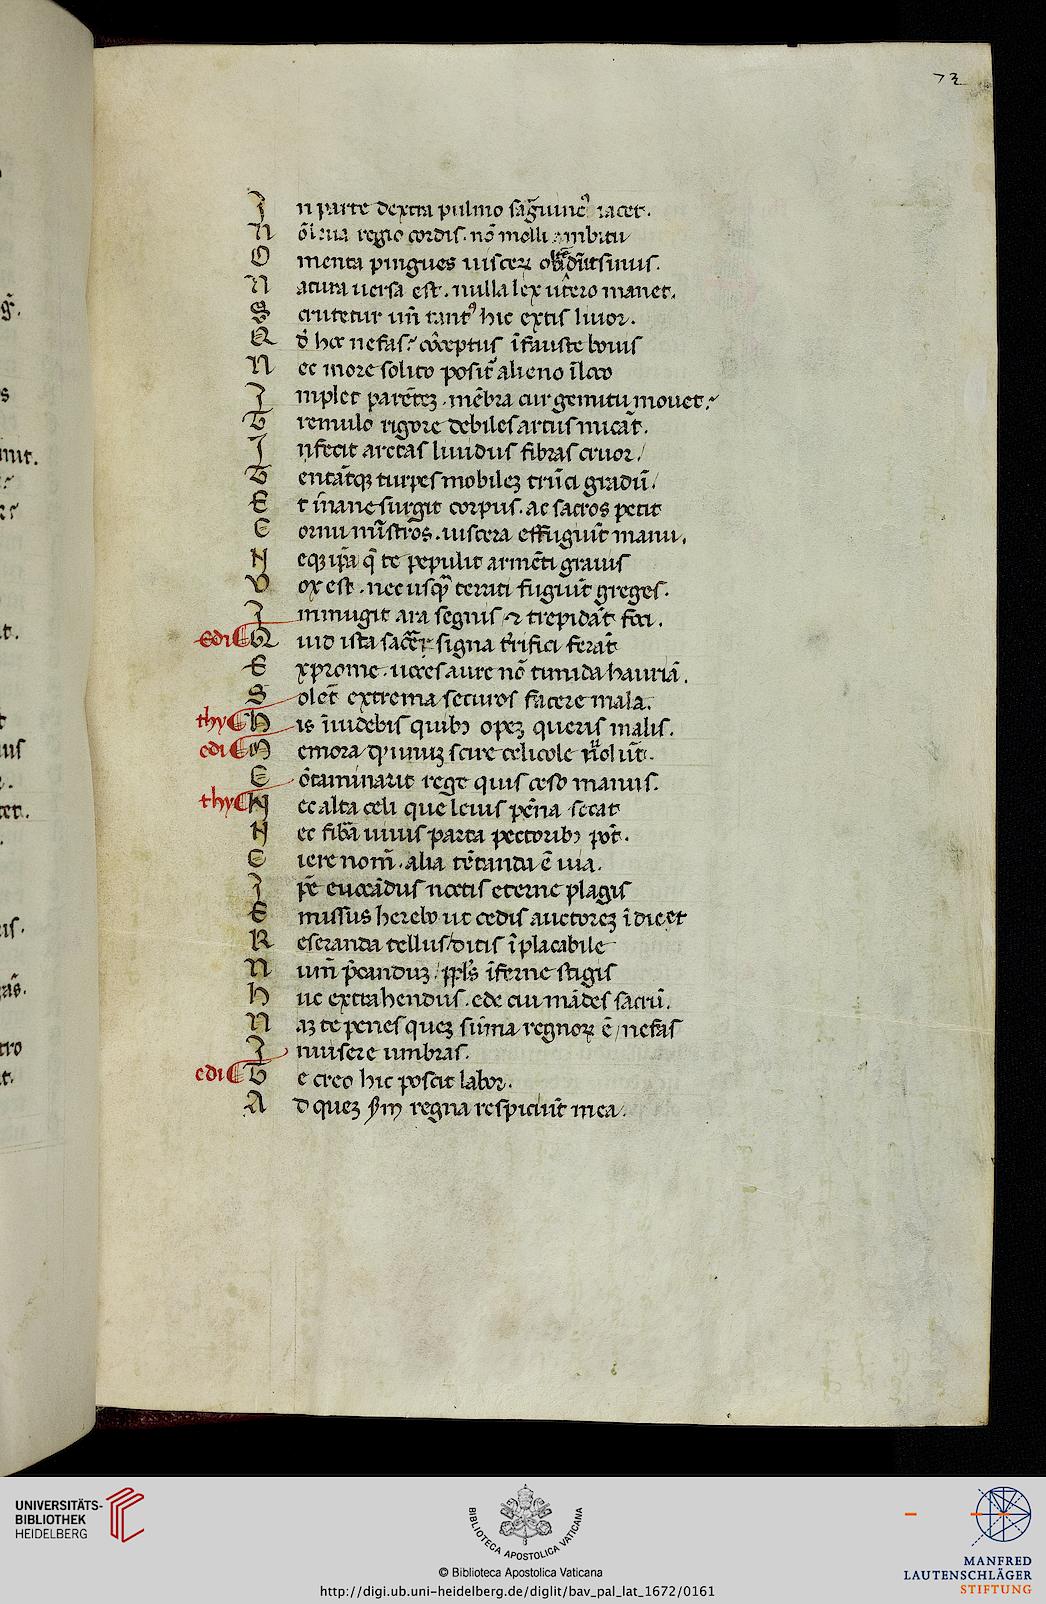 72
In parte dextra pulmo sãguineꝰ iacet.
Nõ leua regio cordis. nõ molli ambitu
Omenta pingues uisceꝝ obdũt sinus.
Natura uersa est. nulla lex utero manet.
Scrutetur uñ tantꝰ hic extis liuor.
Qd̃ hoc nefas? cõceptus ĩfauste bouis
Nec more solito positꝰ alieno ĩ loco
Implet parẽtẽ. mẽbra cur gemitu mouet?
Tremulo rigore debiles artus micãt.
Infecit arctas liuidus fibras cruor/
Tentãtqꝫ turpes mobileꝫ trũci gradũ/
Et ĩnane surgit corpus. ac sacros petit
Cornu mĩstros. uiscera effugiũt manu.
Neqꝫ ip̃a q̃ te pepulit armẽti grauis
Vox est. nec usqᷓ territi fugiũt greges.
Immugit ara segnis ⁊ trepidãt foci.
Edi Quid ista sacri signa t̃rifici ferãt
Exprome. uoces aure nõ timida hauriã.
Solẽt extrema securos facere mala.
thy His ĩuidebis quibꝫ opeꝫ queris malis.
edi Memora qᵈ unuꝫ scire celicole uolũt.
Cõtaminarit rege quis ceso manus.
thy Nec alta celi que leuis pẽna secat
Nec fibã uiuis rapta pectoribꝫ pot̃.
Ciere nom̃. alia tẽtanda ẽ uia.
Ip̃e euocãdus noctis eterne plagis
Emissus herebo ut cedis auctoreꝫ ĩdicet
Reseranda tellus/ditis ĩplacabile
Num̃ p̃canduꝫ/ ppl̃s ĩferne stigis
Huc extrahendus. ede cui mãdes sacrũ.
Naꝫ te penes queꝫ sũma regnoꝝ ẽ/nefas
Inuisere umbras.
edi Te creo hic poscit labor.
Ad queꝫ s̃m regna respiciũt mea.
UNIVERSITÄTS-
BIBLIOTHEK
HEIDELBERG
BIBLIOTECA APOSTOLICA VATICANA
© Biblioteca Apostolica Vaticana
http://digi.ub.uni-heidelberg.de/diglit/bav_pal_lat_1672/0161
MANFRED
LAUTENSCHLÄGER
STIFTUNG